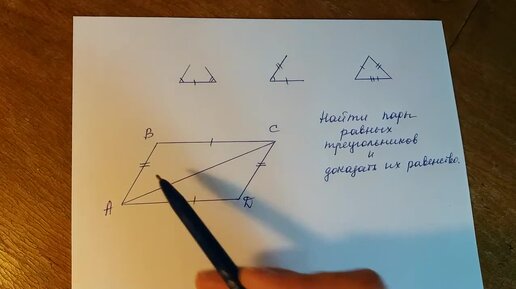 B
C
A
D
Найти пары
равных
треугольников
и
доказать их равенство.